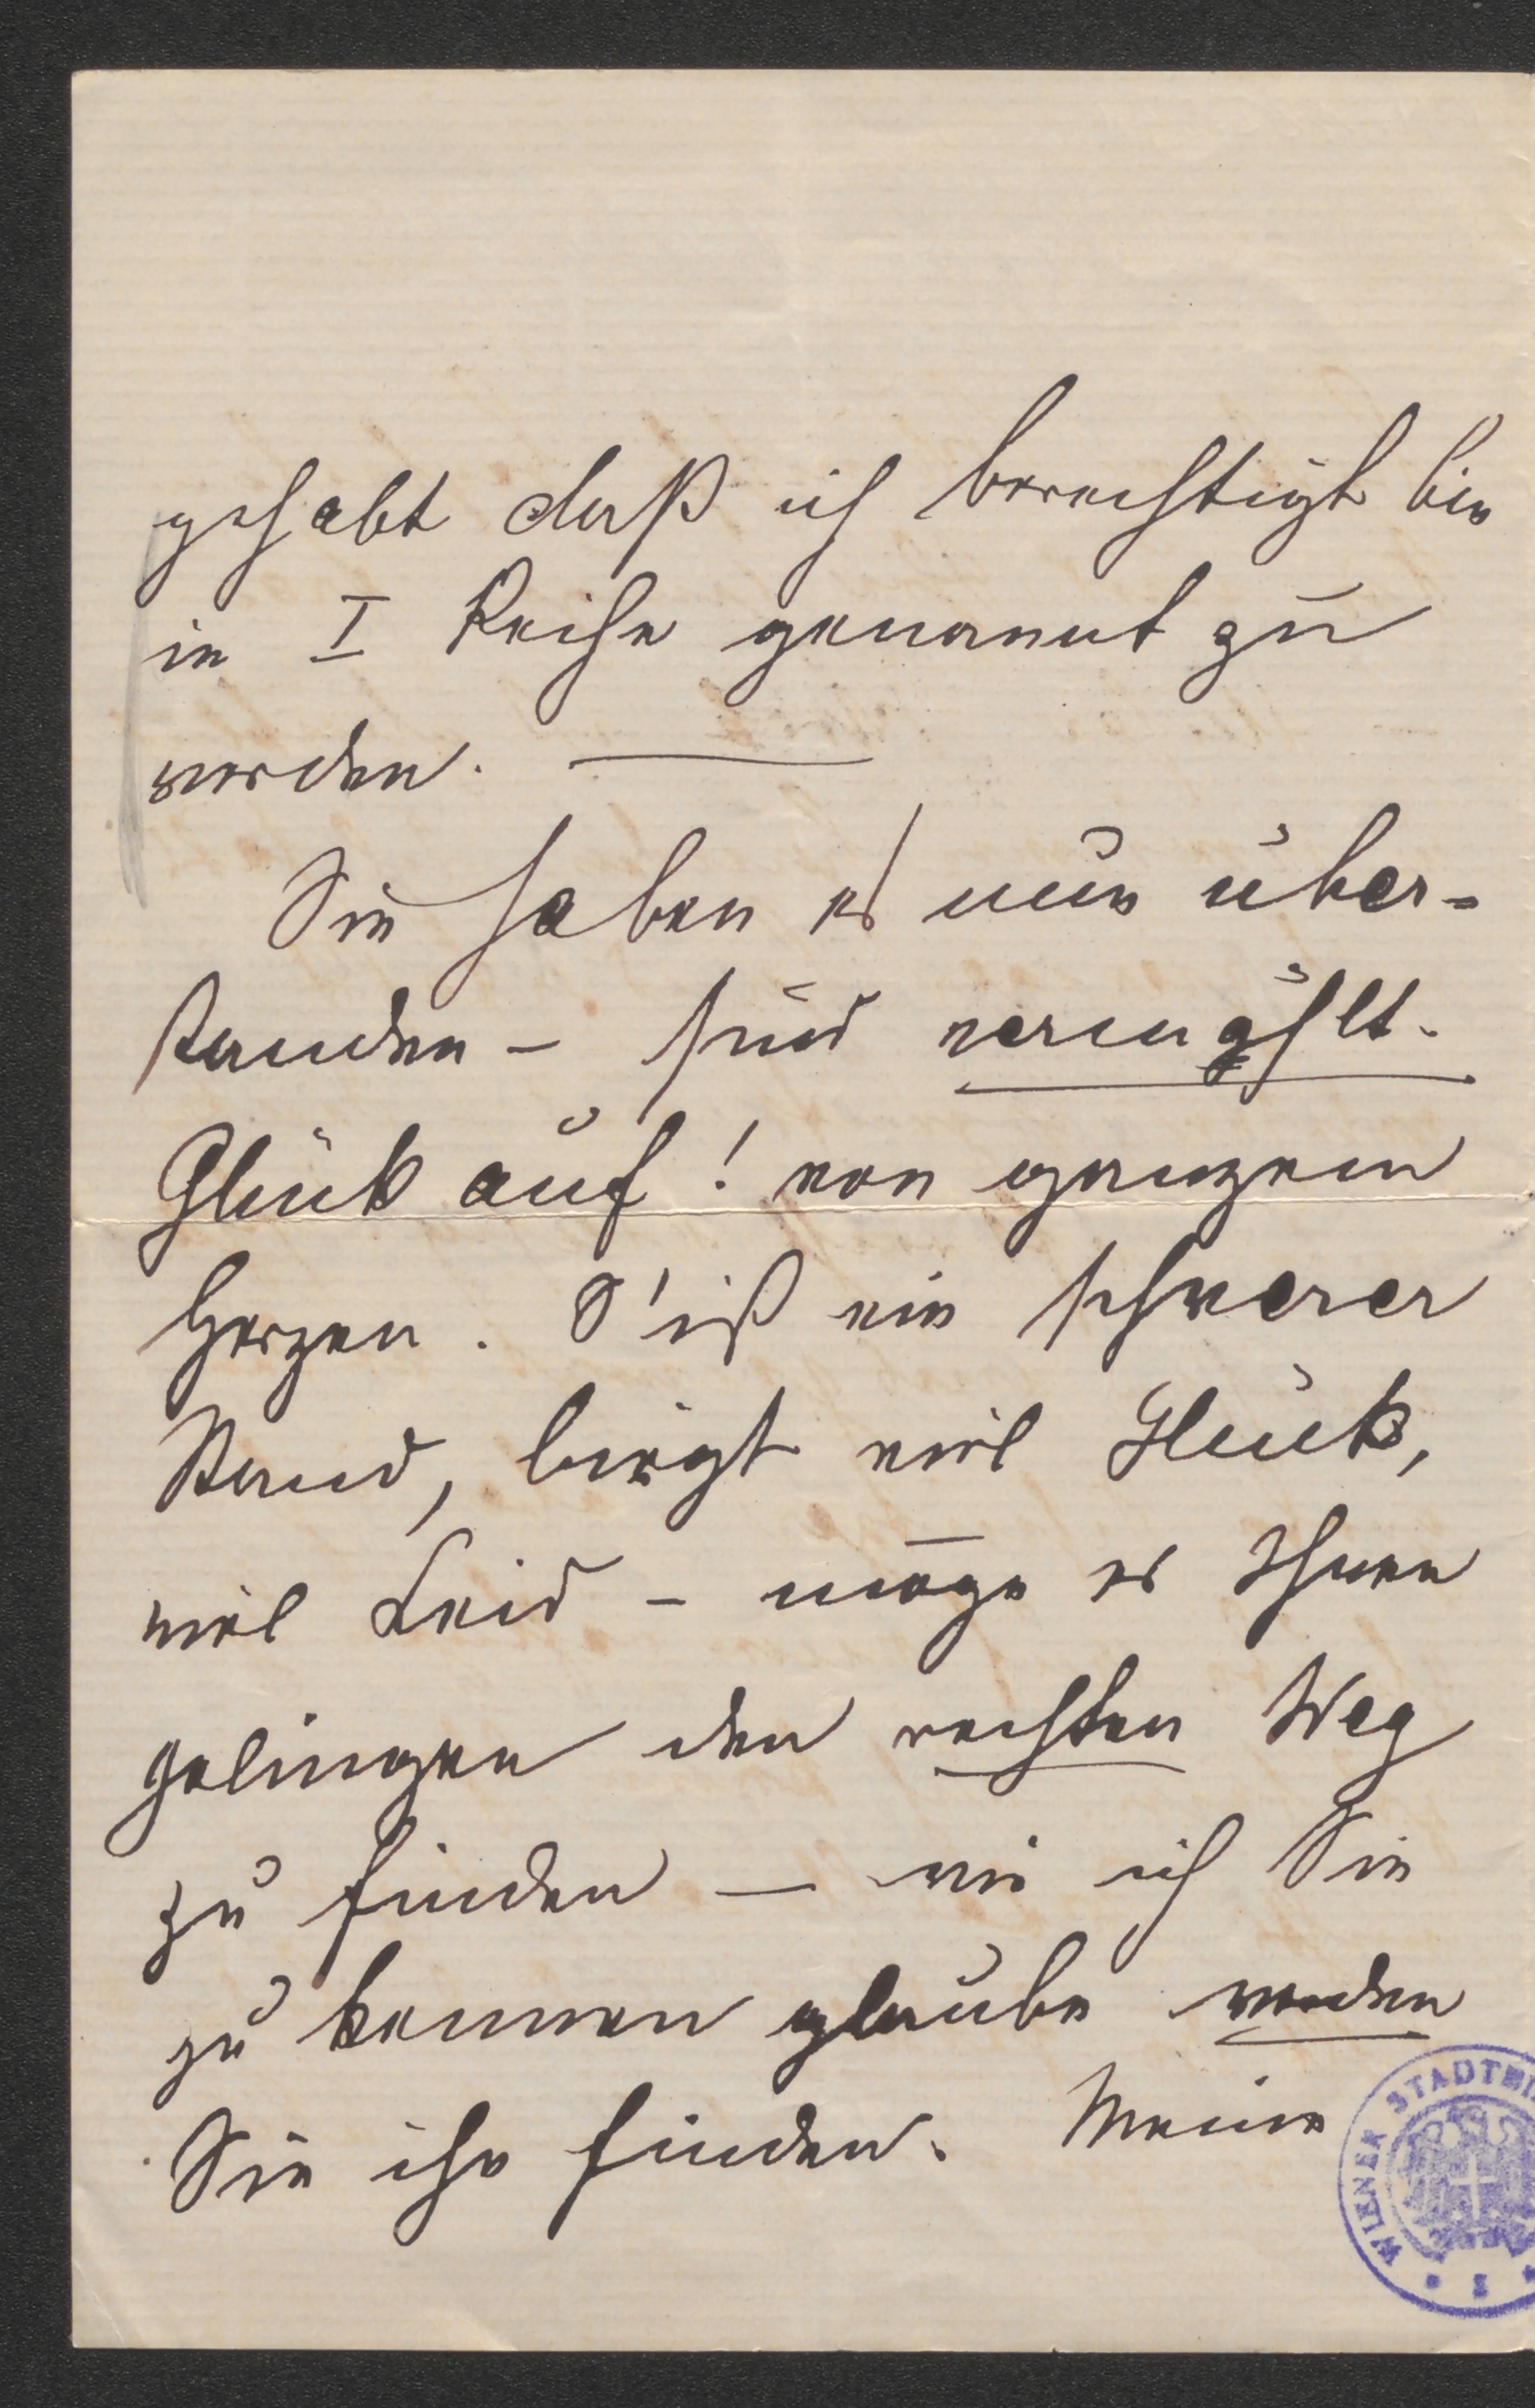 gehabt daß ich berechtigt bin
in I Reihe genannt zu
werden. —
Sie haben es nun über-
standen – sind vermählt.
Glück auf! von ganzem
Herzen. S'ist ein schwerer
Stand, birgt viel Glück,
viel Leid – möge es Ihnen
gelingen den rechten Weg
zu finden — wie ich Sie
zu kennen glaube werden
Sie ihn finden. Meine
WIENER STADTBI